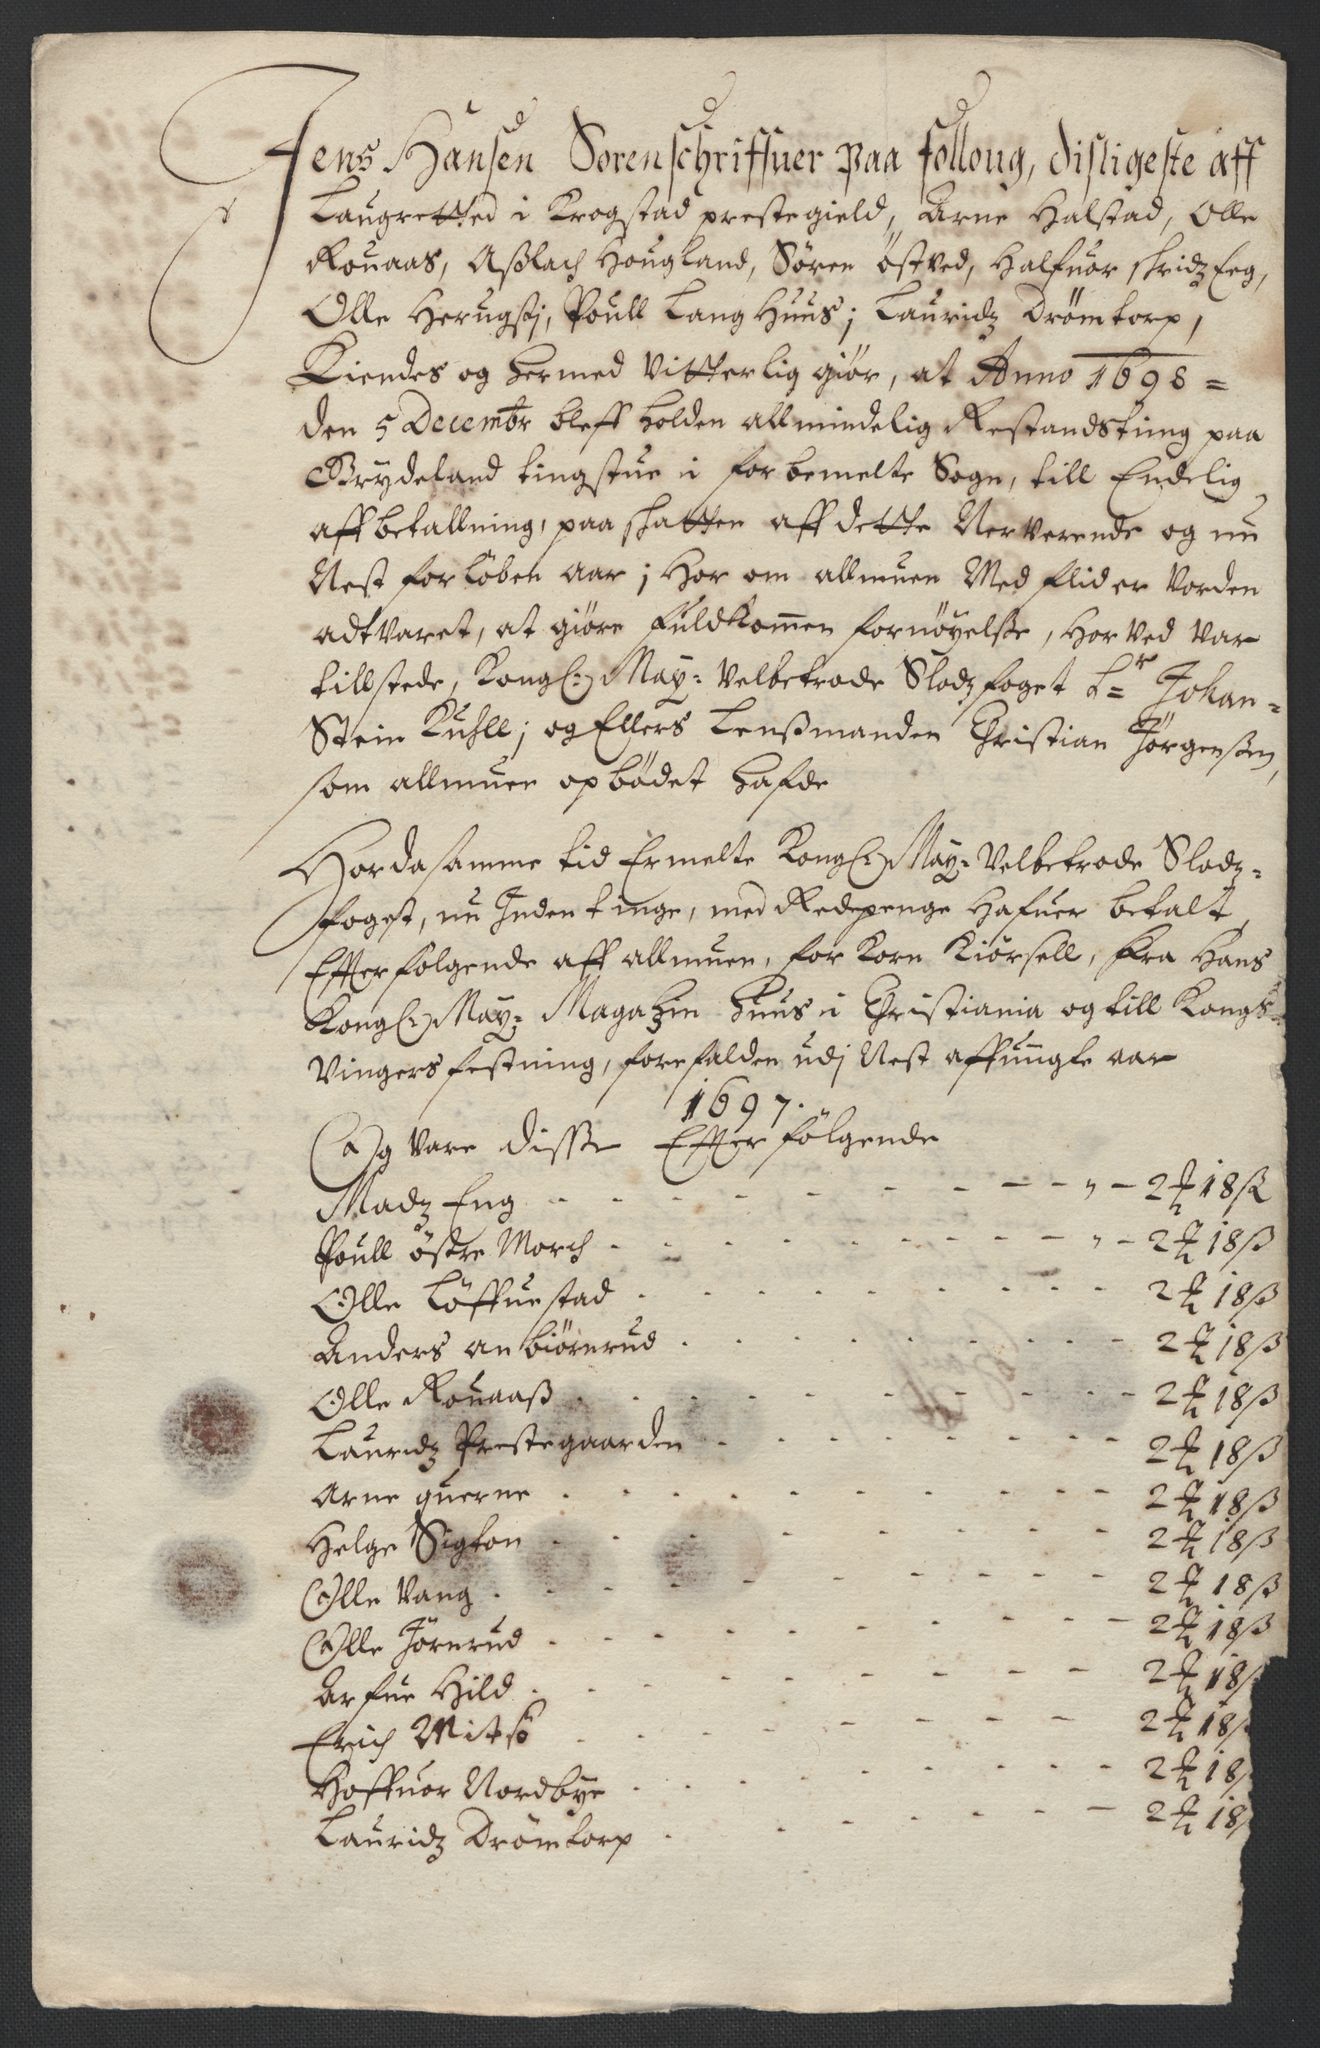 Jens Hansen Sorenschriffuer paa folloug, disligeste aff
Laugretted i Krogstad prestegield, Arne Halstad, Olle
Rouaas, Aßlach Hougland, Søren Östved, Halfuor skridz Eeg,
Olle Herugstj, Poull Lang Huus; Lauridz Drömtorp,
Kiendes og hermed Vitterlig giör, at Anno 1698 =
den 5 Decembr bleff holden allmindelig Restandsting paa
Brydeland tingstue i forbemelte Sogn, till Endelig
aff betallning, paa skatten aff dette Nerverende og nu
Nest forløben aar; Hor om allmuen Med flid er vorden
adtvaret, at giöre fuldkommen fornöyelße, Hor ved var
tillstede, Kongl: May: velbetrode Slodz foget Hr Johan =
Stein Kuhll; og Ellers Lenßmanden Christian Jörgenßen,
som allmuen opbödet hafde
Hor da samme tid Ermelte Kongl: May: Velbetrode Slodz=
foget, nu Inden tinge, med Redepenge Hafuer betalt
Effterfølgende aff allmuen, for Korn Kiörsell, fra Hans
Kongl: May: Magazin huus i Christiania og till Kongs=
Vingers festning, forefalden udj Nest affuigte aar
1697.
Og vare disße Effterfölgende
Madz Eng - - - 2 ₰ 18 ß
Poull östre Morch - - - 2 ₰ 18 ß
Olle Löffuestad - - - 2 ₰ 18 ß
Anders anbiörnrud - - - 2 ₰ 18 ß
Olle Rouaaß - - - 2 ₰ 18 ß
Lauridz Prestegaarden - - - 2 ₰ 18 ß
Arne querne - - - 2 ₰ 18 ß
Helge Sigton - - - 2 ₰ 18 ß
Olle Vang - - - 2 ₰ 18 ß
Olle Jörnrud - - - 2 ₰ 18 ß
Arfue Hild - - - 2 ₰ 18 ß
Erich Mitsö - - - 2 ₰ 18 ß
Hoffuor Nordbye - - - 2 ₰ 18
Lauridz Drömtorp - - - 2 ₰ 18